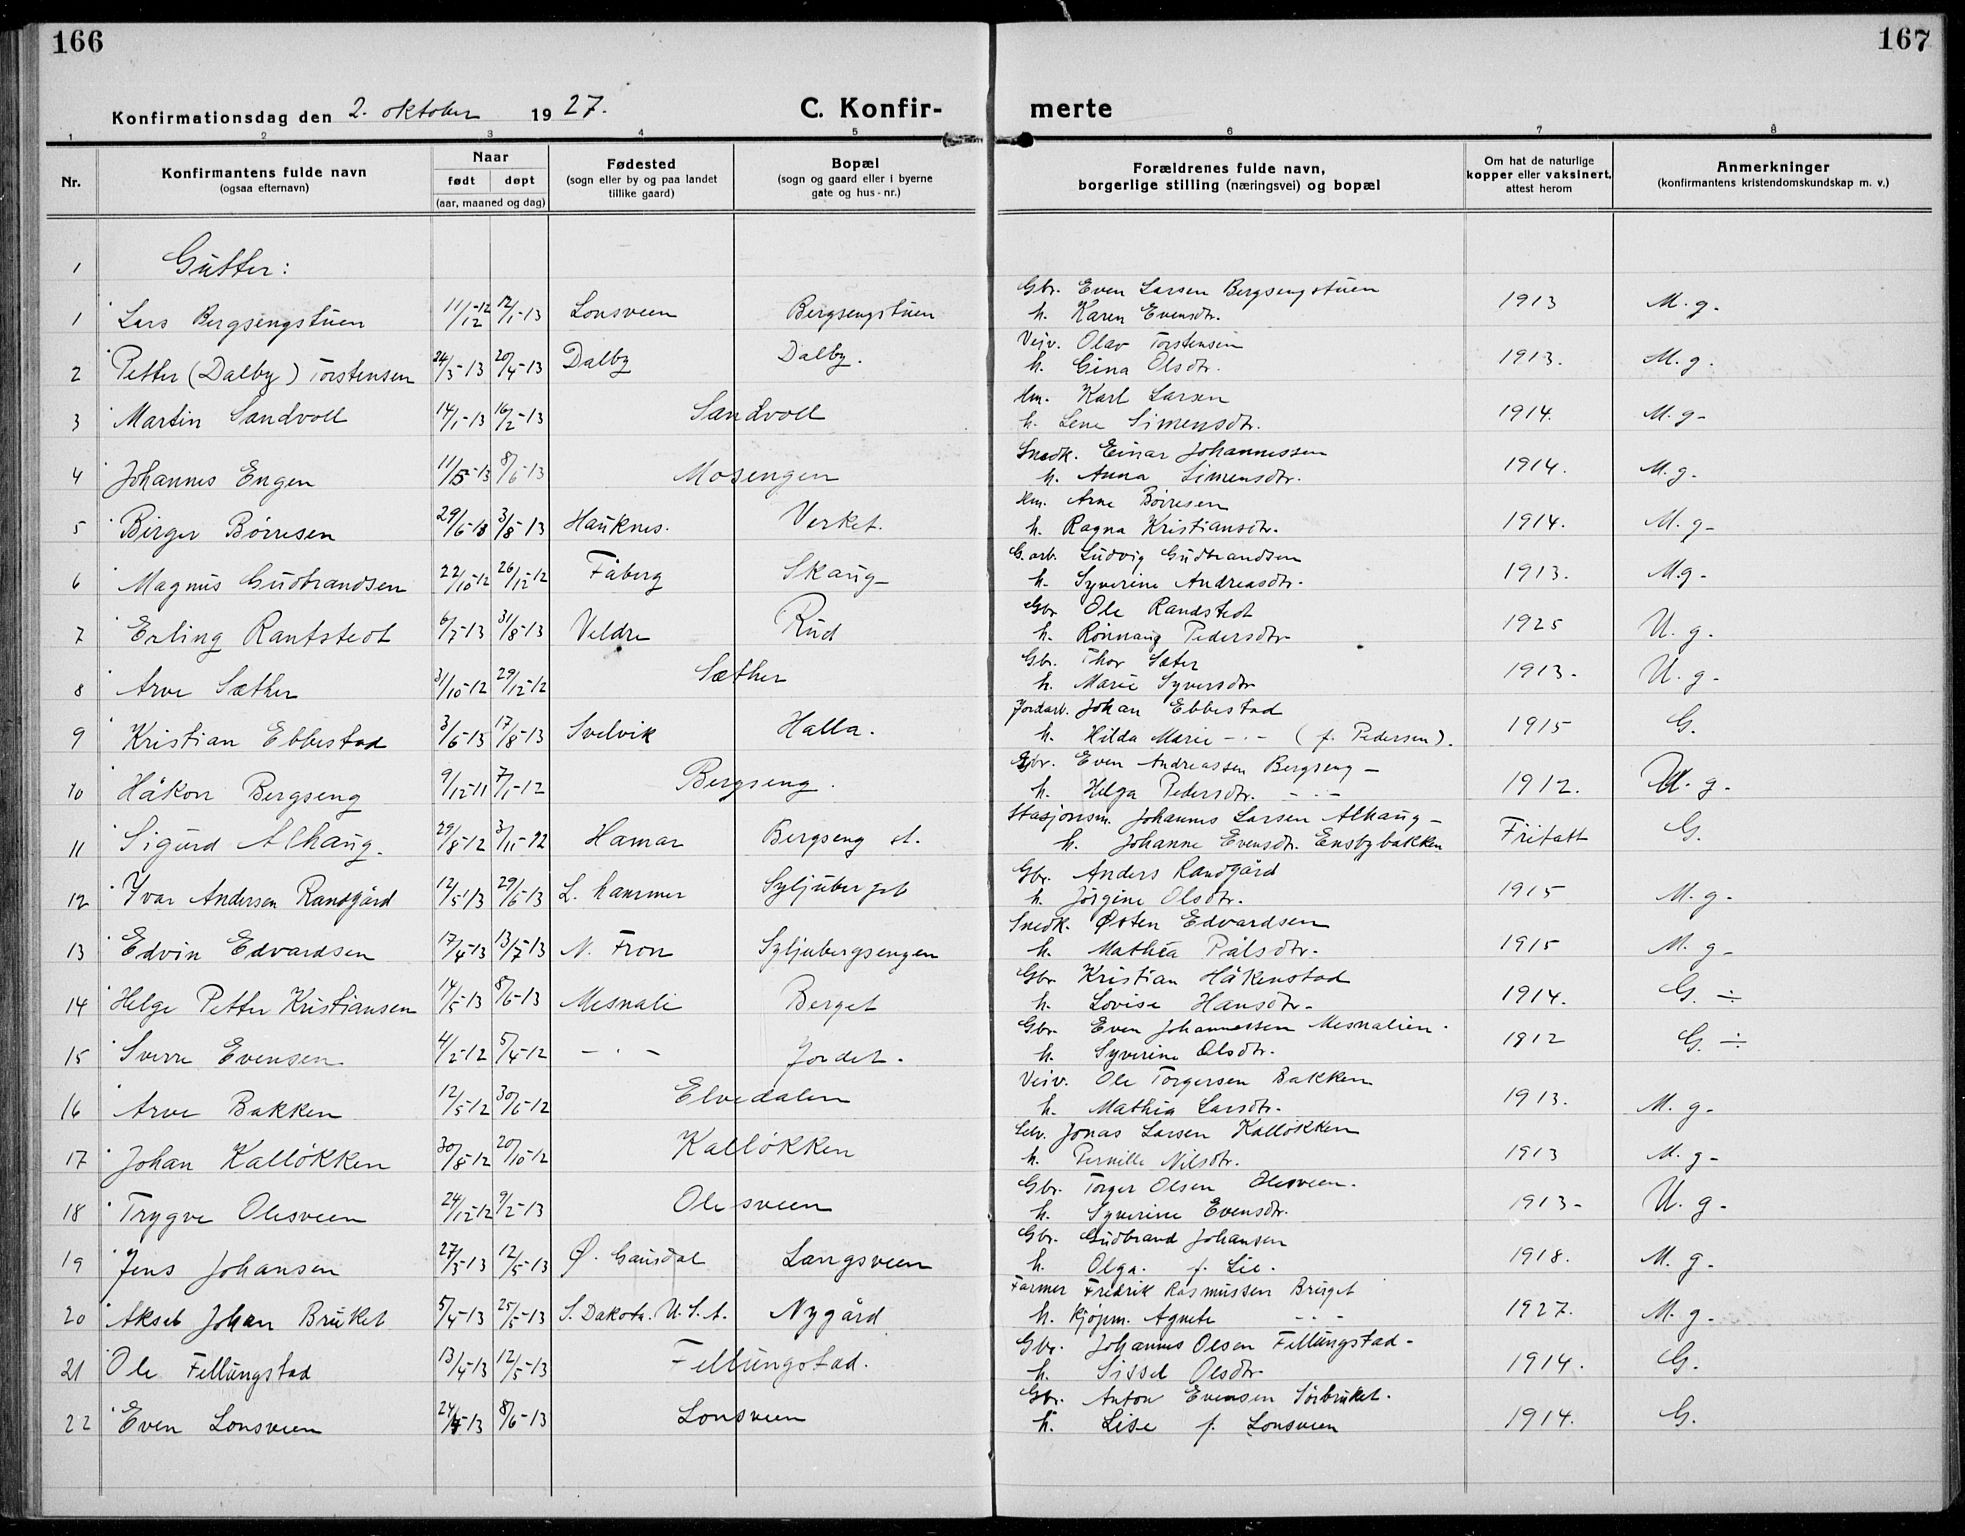 166
167
Konfirmationsdag den 2. oktober 1927.
C. Konfir-
merte
1 2 3 4 5 6 7 8
Nr.
Konfirmantens fulde navn
(ogsaa efternavn)
Naar
født døpt
(aar, maaned og dag)
Fødested
(sogn eller by og paa landet
tillike gaard)
Bopæl
(sogn og gaard eller i byerne
gate og hus-nr.)
Forældrenes fulde navn,
borgerlige stilling (næringsvei) og bopæl
Om hat de naturlige
kopper eller vaksinert,
attest herom
Anmerkninger
(konfirmantens kristendomskundskap m. v.)
1 Gutter:
Gbr. Even Larsen Bergsengstuen
1 Lars Bergsengstuen 11/12-12 12/1-13 Lonsveen Bergsengstuen h. Karen Evensdtr. 1913 M.g.
Veiv. Olav Torstensen
2 Petter (Dalby) Torstensen 24/3-13 20/4-13 Dalby Dalby. h. Gina Olsdtr. 1913. M.g.
Hm. Karl Larsen
3 Martin Sandvoll 14/1-13 16/2-13 Sandvoll h. Lene Simensdtr. 1914. M.g.
Snedk. Einar Johannessen
4 Johannes Engen 11/5-13 8/6-13 Mosengen h. Anna Simensdtr. 1914. M.g.
Hm. Arne Børresen
5 Birger Børresen 29/6-13 3/8-13 Hauknes. Verket. h. Ragna Kristiansdtr. 1914. M.g.
G.arb. Ludvig Gudbrandsen
6 Magnus Gudbrandsen 22/10-12 26/12-12 Fåberg Skaug h. Syverine Andreasdtr. 1913. M.g.
Gbr Ole Randstedt
7 Erling Rantstedt 6/7-13 31/8-13 Veldre Rud h. Rønnaug Pedersdtr 1925 U.g.
Gbr. Thor Sæter
8 Arve Sæther 31/10-12 29/12-12 Sæther h. Marie Syversdtr 1913. U.g.
Jordarb. Johan Ebbestad
9 Kristian Ebbestad 3/6-13 17/8-13 Svelvik Halla. h. Hilda Marie -"- (f. Pedersen). 1915 G.
Gbr. Even Andreassen Bergseng
10 Håkon Bergseng 9/12-11 7/1-12 Bergseng. h. Helga Pedersdtr. -"- 1912. M.g.
Stasjonsm. Johannes Larsen Alhaug
11 Sigurd Alhaug. 29/8-12 3/11-12 Hamar Bergseng st. h. Johanne Evensdtr. Ensbybakken Fritatt G.
Gbr. Anders Randgård
12 Yvar Andersen Randgård 12/5-13 29/6-13 L.hammer Syljuberget h. Jørgine Olsdtr. 1915 M.g.
Snedk. Østen Edvardsen
13 Edvin Edvardsen 17/4-13 13/7-13 N. Fron Syljubergsengen h. Mathea Pålsdtr. 1915 M.g.
Gbr Kristian Håkenstad
14 Helge Petter Kristiansen 14/5-13 8/6-13 Mesnali Berget h. Lovise Hansdtr. 1914. G. ÷
Gbr. Even Johannessen Mesnalien.
15 Sverre Evensen 4/2-12 5/4-12 -"- Jordet. h. Syverine Olsdtr. 1912 G. ÷
Veiv. Ole Torgersen Bakken
16 Arve Bakken 12/5-12 30/6-12 Elvedalen h. Mathea Larsdtr. 1913. M.g.
Jonas Larsen Kalløkken
17 Johan Kalløkken 30/8-12 20/10-12 Kalløkken h. Pernille Nilsdtr. 1913 M.g.
Gbr. Torger Olsen Olesveen.
18 Trygve Olesveen 24/12-12 9/2-13 Olesveen h. Syverine Evensdtr. 1913. U.g.
Gbr. Gudbrand Johansen
19 Jens Johansen 27/3-13 12/5-13 Ø. Gausdal Langsveen h. Olga. f. Lie. 1918. M.g.
Farmer Fredrik Rasmussen Bruget
20 Aksel Johan Bruket 5/4-13 25/5-13 S. Dakota. U.S.A. Nygård h. kjøpm. Agnete -"- 1927. M.g.
Gbr. Johannes Olsen Fellungstad
21 Ole Fellungstad 13/4-13 12/5-13 Fellungstad. h. Sissel Olsdtr. 1914. G.
Gbr. Anton Evensen Sørbruket.
22 Even Lonsveen 24/4-13 8/6-13 Lonsveen h. Lise f. Lonsveen 1914. G.